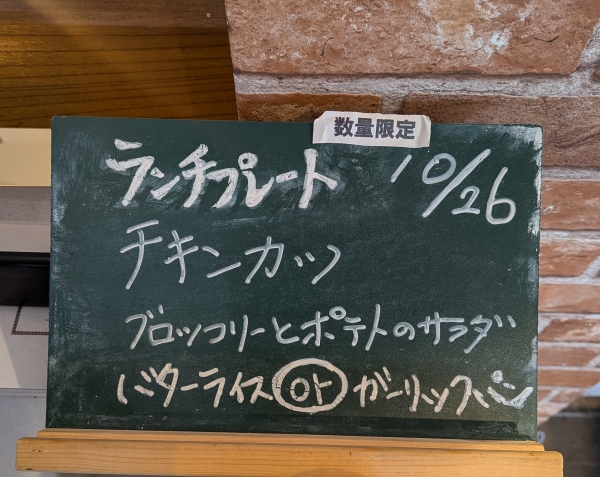 数量限定
ランチプレート 10/26
チキンカツ
ブロッコリーとポテトのサラダ
バターライス or ガーリックパン